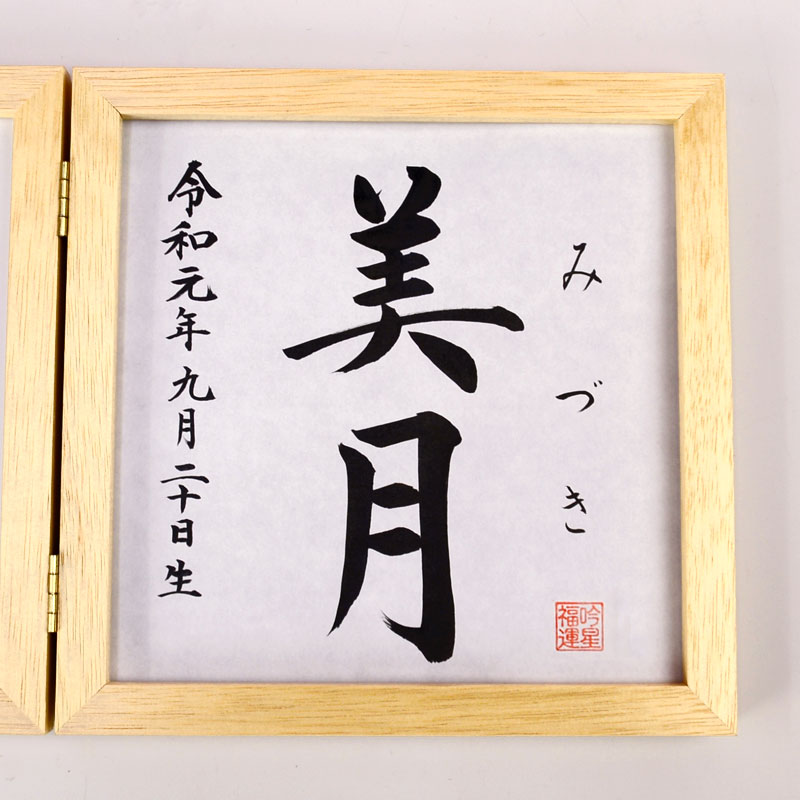 みづき
美月
令和元年九月二十日生
吟星
福運